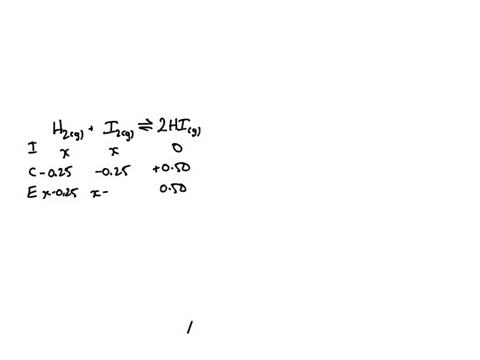 H₂(g) + I₂(g) ⇌ 2HI(g)
I x x 0
C -0.25 -0.25 +0.50
E x-0.25 x- 0.50